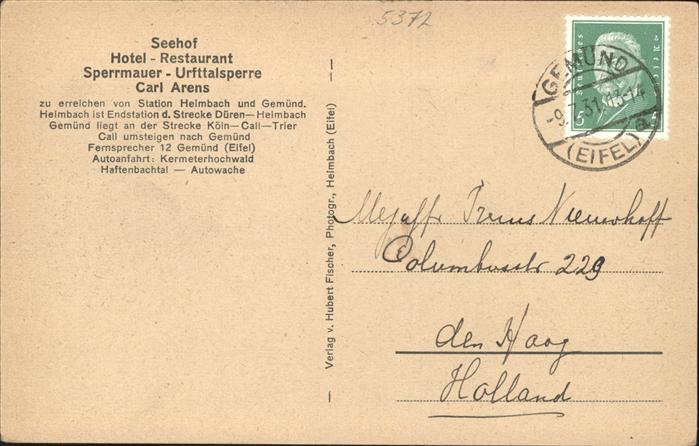 5372
Seehof
Hotel - Restaurant
Sperrmauer - Urfttalsperre
Carl Arens
zu erreichen von Station Heimbach und Gemünd.
Heimbach ist Endstation d. Strecke Düren—Heimbach
Gemünd liegt an der Strecke Köln—Call—Trier
Call umsteigen nach Gemünd
Fernsprecher 12 Gemünd (Eifel)
Autoanfahrt: Kermeterhochwald
Haftenbachtal — Autowache
Verlag v. Hubert Fischer, Photogr., Heimbach (Eifel)
GEMÜND
-9.7.31.13-14
(EIFEL) a
5
Columbusstr 229
den Haag
Holland